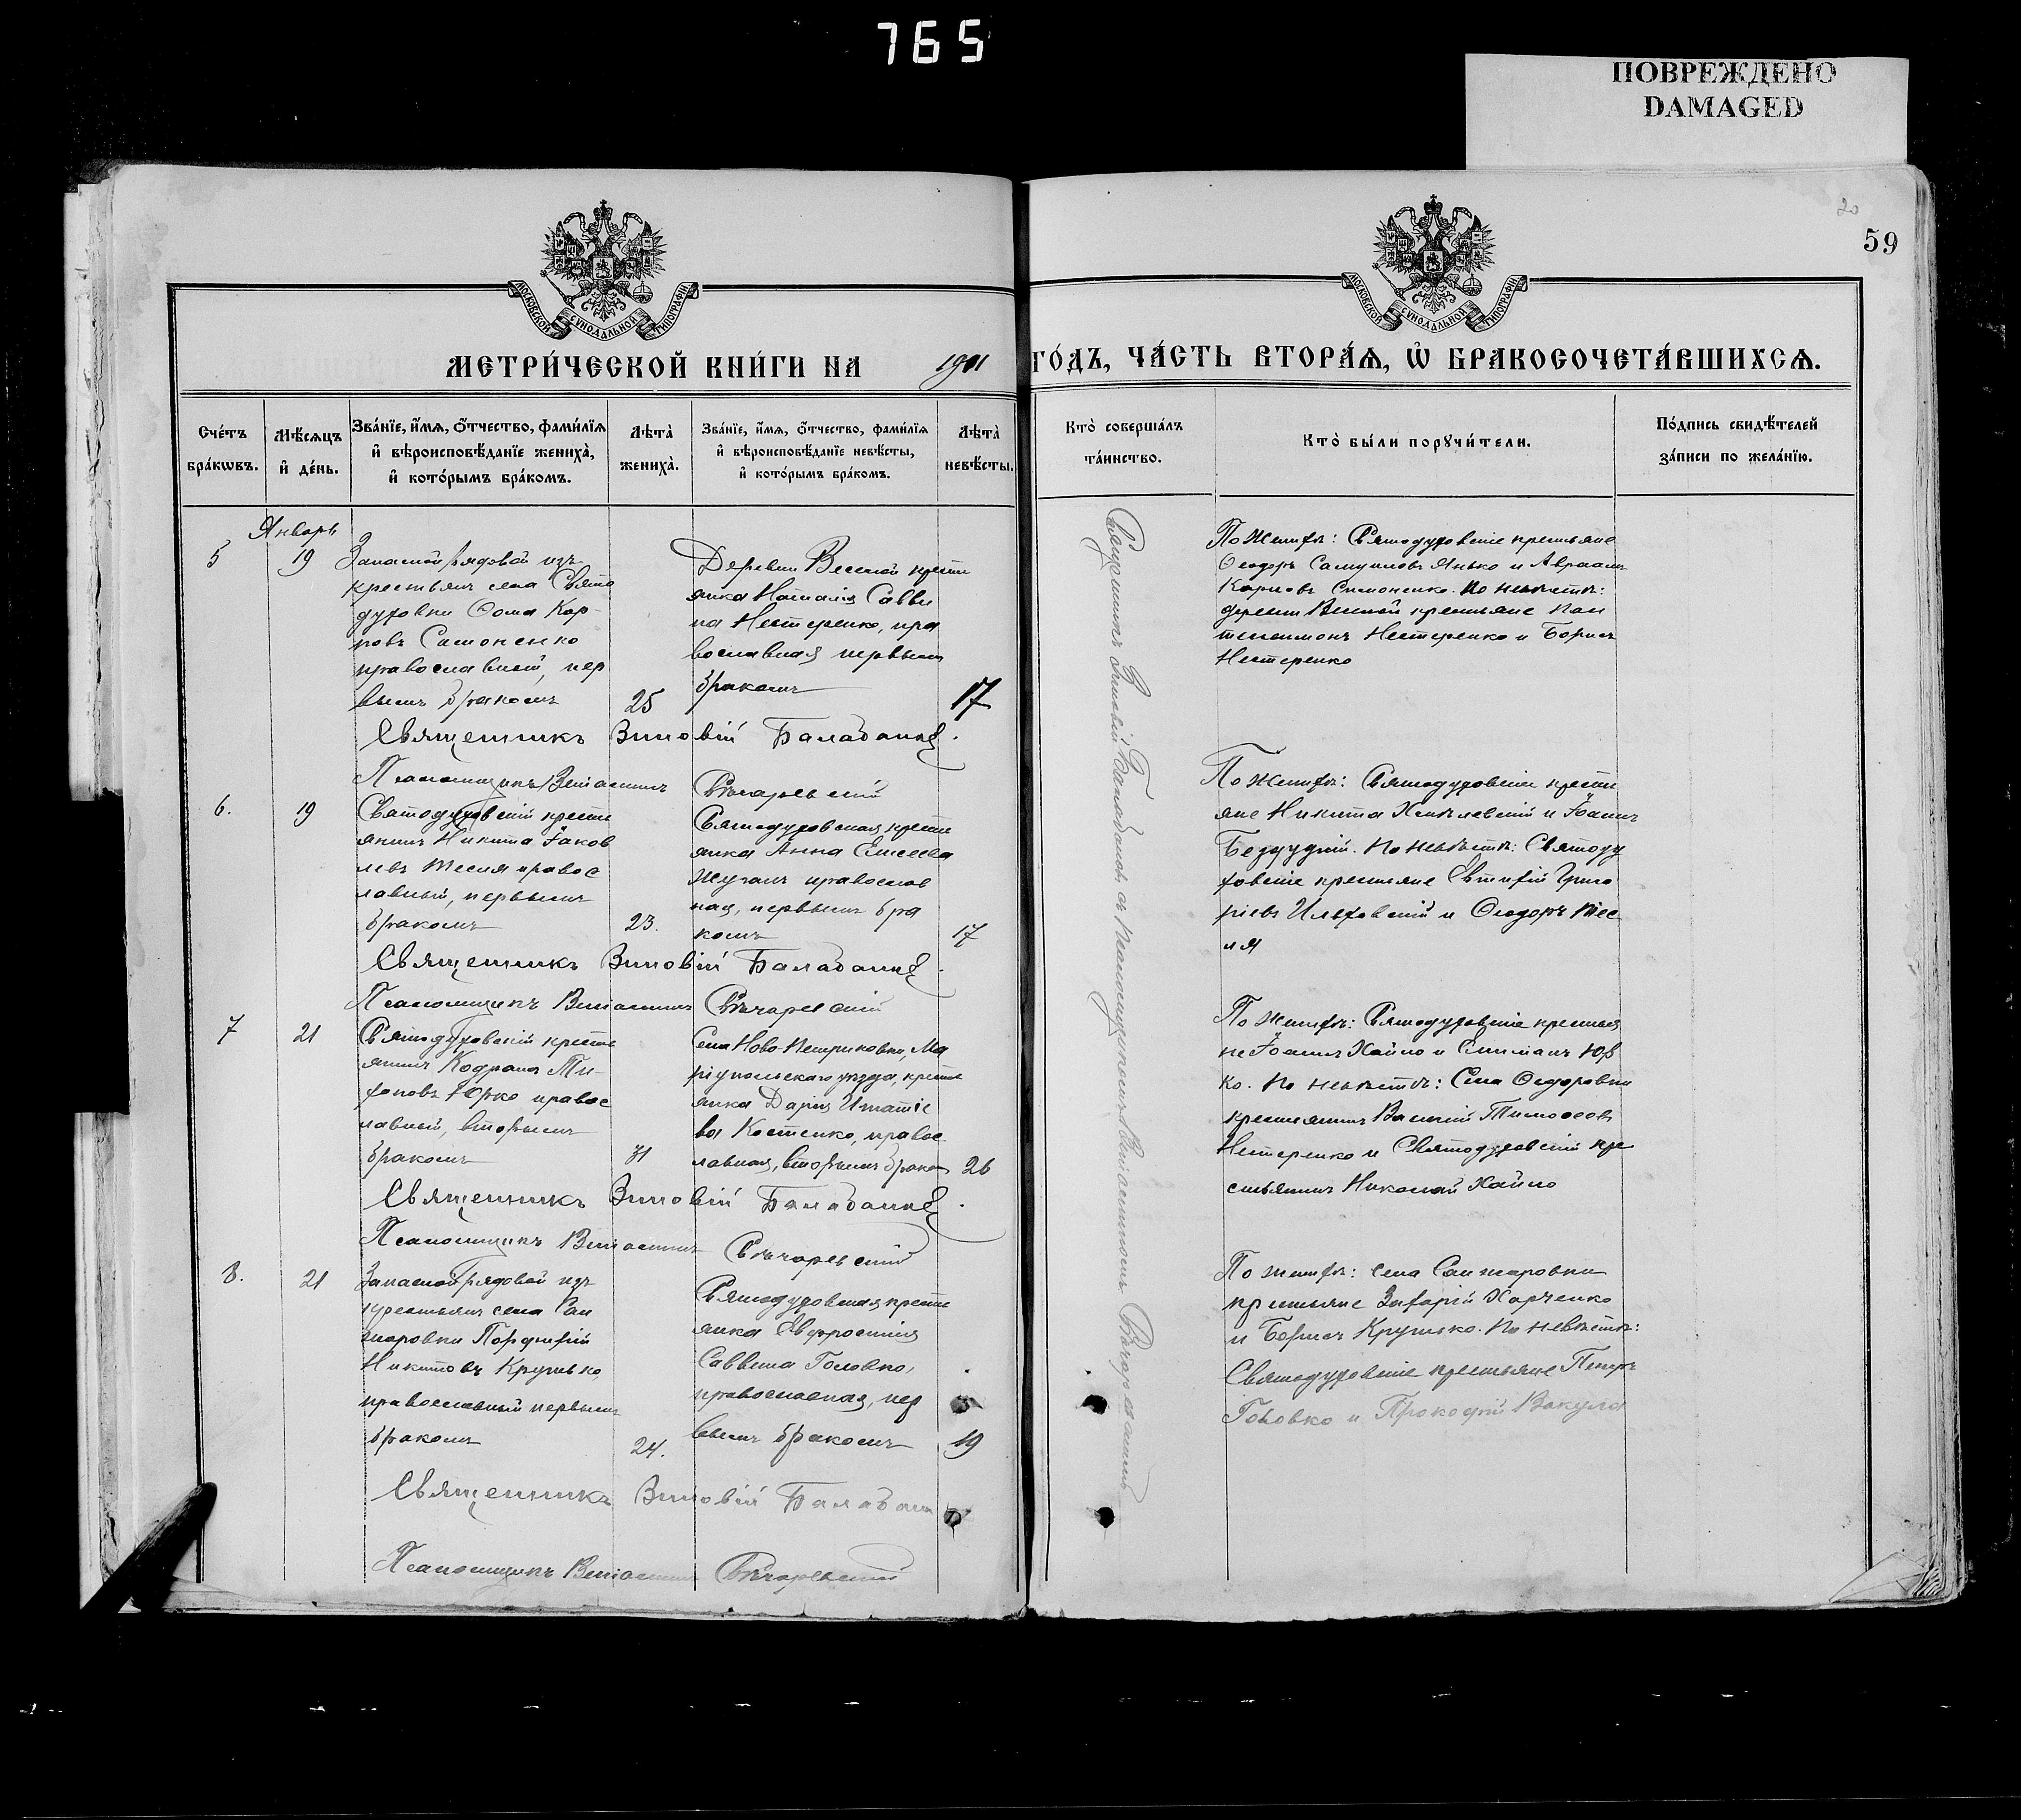 765
ПОВРЕЖДЕНО
DAMAGED
20
59
МОСКОВСКОЙ СУНОДАЛЬНОЙ ТИПОГРАФІИ
МОСКОВСКОЙ СУНОДАЛЬНОЙ ТИПОГРАФІИ
МЕТРИ́ЧЕСКОЙ КНИ́ГИ НА 1901 ГО́ДЪ, ЧА́СТЬ ВТОРА́Я, Ѡ҆ БРАКОСОЧЕТА́ВШИХСѦ.
Сче́тъ
бра́кѡвъ.
Мѣ́сѧцъ
и҆ де́нь.
Зва́нїе, и҆́мѧ, ѻ҆́тчество, фами́лїѧ
и҆ вѣроисповѣ́данїе жениха̀,
и҆ кото́рымъ бра́комъ.
Лѣта̀
жениха̀.
Зва́нїе, и҆́мѧ, ѻ҆́тчество, фами́лїѧ
и҆ вѣроисповѣ́данїе невѣ́сты,
и҆ кото́рымъ бра́комъ.
Лѣта̀
невѣ́сты.
Кто̀ соверша́лъ
та́инство.
Кто̀ бы́ли порꙋчи́тели.
По́дпись свидѣ́телей
за́писи по жела́нїю.
Январь
5
19
Запасной рядовой изъ
крестьянъ села Свято
духовки Ѳома Кар-
повъ Симоненко
православный, пер
вымъ бракомъ
25
Деревни Веселой кресть
янка Наталія Савви
на Нестеренко, пра
вославная первымъ
бракомъ
17
По женихѣ: Святодуховскіе крестьяне
Ѳеодоръ Самуиловъ Янько и Авраамъ
Карповъ Симоненко. По невѣстѣ:
деревни Веселой крестьяне Пан
телеимонъ Нестеренко и Борисъ
Нестеренко
Священникъ Зиновій Балабаненко.
Псаломщикъ Веніаминъ Свѣчаревскій
6.
19
Святодуховскій кресть
янинъ Никита Іаков
левъ Тесля правос
лавный, первымъ
бракомъ
23.
Святодуховская кресть
янка Анна Елисеева
Жуганъ православ
ная, первымъ бра
комъ
17
По женихѣ: Святодуховскіе кресть
яне Никита и Іоаннъ
По невѣстѣ: Святоду
ховскіе крестьяне Евтихій Григо
ріевъ Ильховскій и Ѳеодоръ Тес
ля
Священникъ Зиновій Балабаненко.
Псаломщикъ Веніаминъ Свѣчаревскій
7
21
Святодуховскій кресть
янинъ Кодратъ Ти-
хоновъ Юрко правос
лавный, вторымъ
бракомъ
31
Села Ново-Петриковки, Ма
ріупольскаго уѣзда, кресть
янка Дарія Игнатіе
ва Костенко, правос
лавная, вторымъ бракомъ
26
По женихѣ: Святодуховскіе крестья
не Іоаннъ Хайло и Юр
ко. По невѣстѣ: Села Ѳедоровки
крестьянинъ Василій Тимоѳеевъ
Нестеренко и Святодуховскій кре
стьянинъ Николай Хайло
Священникъ Зиновій Балабаненко.
Псаломщикъ Веніаминъ Свѣчаревскій
8.
21
Запасной рядовой изъ
крестьянъ села Сан
жаровки Порфирій
Никитовъ Крутько,
православный первымъ
бракомъ
24.
Святодуховская кресть
янка Евфросинія
Саввина Головко,
православная, пер
вымъ бракомъ
19
По женихѣ: села Санжаровки
крестьяне Захарій Харченко
и Борисъ Крутько. По невѣстѣ:
Святодуховскіе крестьяне Петръ
Головко и Прокофій Вакула
Священникъ Зиновій Балабан
Псаломщикъ Веніаминъ Свѣчаревскій
Священникъ Зиновій съ псаломщикомъ Веніаминомъ